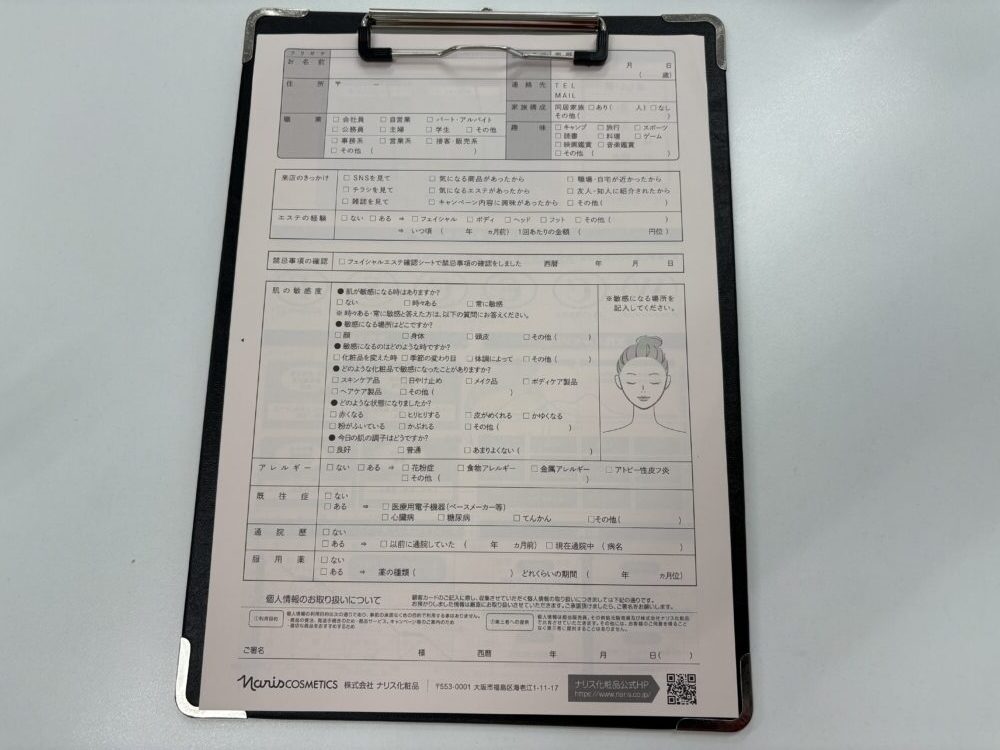 フリガナ
お名前
月 日
( 歳)
住所 〒 －
連絡先 TEL
MAIL
家族構成 同居家族 □あり( 人) □なし
その他( )
職業 □会社員 □自営業 □パート・アルバイト
□公務員 □主婦 □学生 □その他
□事務系 □営業系 □接客・販売系
□その他 ( )
趣味 □キャンプ □旅行 □スポーツ
□読書 □料理 □ゲーム
□映画鑑賞 □音楽鑑賞
□その他 ( )
来店のきっかけ □SNSを見て □気になる商品があったから □職場・自宅が近かったから
□チラシを見て □気になるエステがあったから □友人・知人に紹介されたから
□雑誌を見て □キャンペーン内容に興味があったから □その他( )
エステの経験 □ない □ある ⇒ □フェイシャル □ボディ □ヘッド □フット □その他( )
⇒ いつ頃 ( 年 ヵ月前) 1回あたりの金額 ( 円位)
禁忌事項の確認 □フェイシャルエステ確認シートで禁忌事項の確認をしました 西暦 年 月 日
肌の敏感度 ●肌が敏感になる時はありますか?
□ない □時々ある □常に敏感
※時々ある・常に敏感と答えた方は、以下の質問にお答えください。
●敏感になる場所はどこですか?
□顔 □身体 □頭皮 □その他( )
●敏感になるのはどのような時ですか?
□化粧品を変えた時 □季節の変わり目 □体調によって □その他( )
●どのような化粧品で敏感になったことがありますか?
□スキンケア品 □日やけ止め □メイク品 □ボディケア製品
□ヘアケア製品 □その他( )
●どのような状態になりましたか?
□赤くなる □ヒリヒリする □皮がめくれる □かゆくなる
□粉がふいている □かぶれる □その他( )
●今日の肌の調子はどうですか?
□良好 □普通 □あまりよくない( )
※敏感になる場所を
記入してください。
アレルギー □ない □ある ⇒ □花粉症 □食物アレルギー □金属アレルギー □アトピー性皮フ炎
□その他( )
既往症 □ない
□ある ⇒ □医療用電子機器(ペースメーカー等)
□心臓病 □糖尿病 □てんかん □その他( )
通院歴 □ない
□ある ⇒ □以前に通院していた ( 年 ヵ月前) □現在通院中 (病名 )
服用薬 □ない
□ある ⇒ 薬の種類( ) どれくらいの期間 ( 年 ヵ月位)
個人情報のお取り扱いについて
顧客カードのご記入に際し、収集させていただく個人情報の取り扱いにつきましては下記の通りです。
お預かりしました情報は厳密にお取り扱いさせていただきます。ご承諾頂けましたら、ご署名をお願いします。
①利用目的
個人情報の利用目的は次の通りであり、事前の承諾なく他の目的で利用する事はありません。
ご署名 様 西暦 年 月 日( )
naris COSMETICS 株式会社 ナリス化粧品 〒553-0001 大阪市福島区海老江1-11-17
ナリス化粧品公式HP
https://www.naris.co.jp/